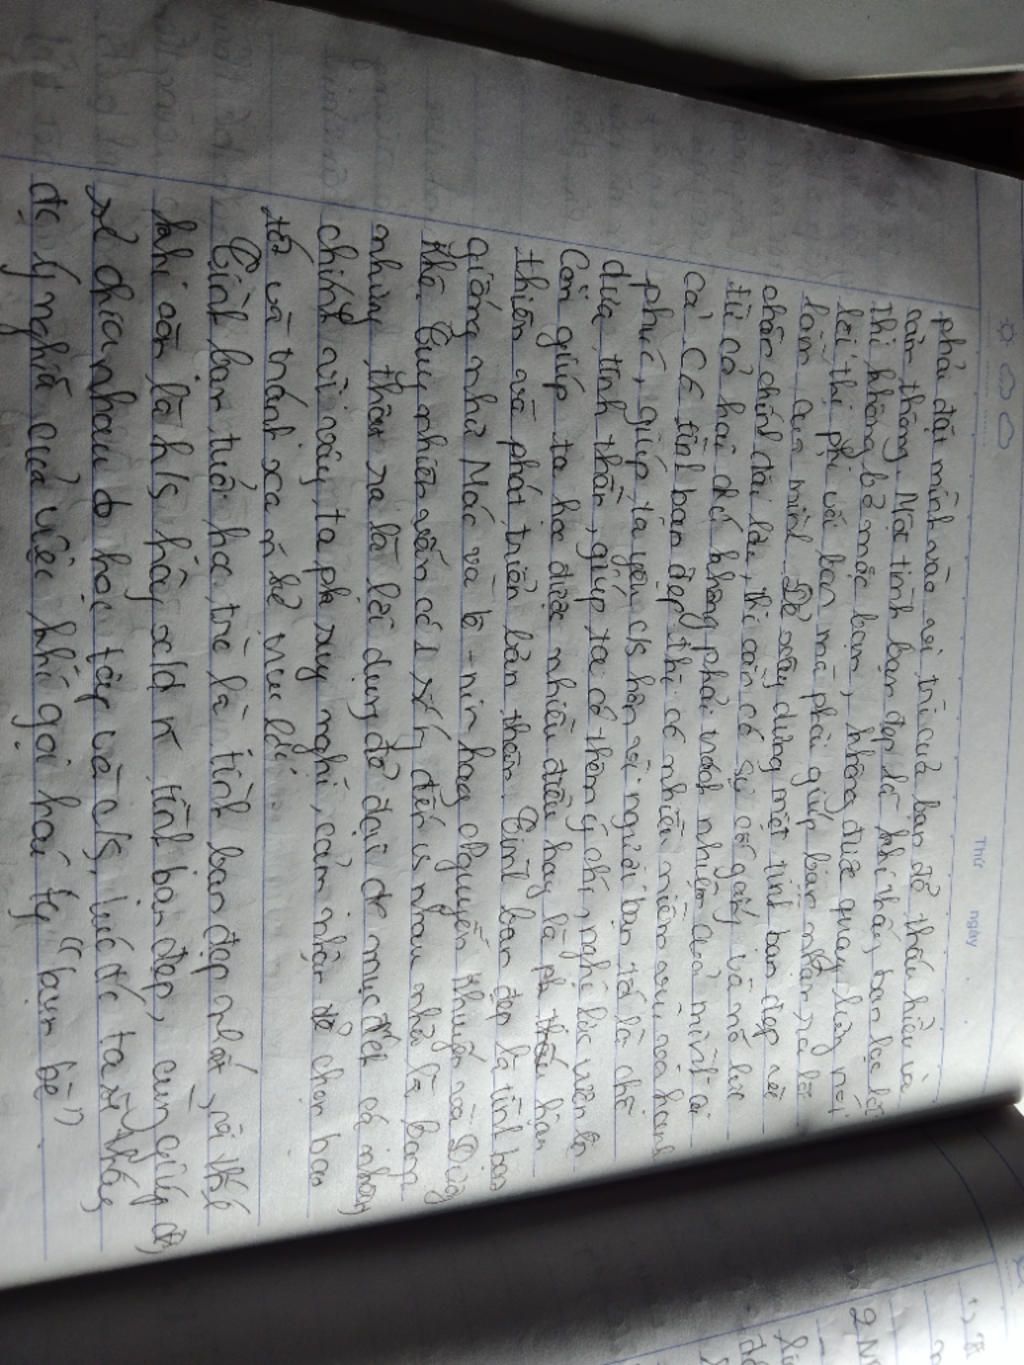 Thứ ngày
phải đặt mình vào vị trí của bạn để thấu hiểu và
cảm thông. Một tình bạn đẹp là khi thấy bạn lạc lối
thì không bỏ mặc bạn, không được quay lưng nói
lời thị phi với bạn mà phải giúp bạn nhận ra lỗi
lầm của mình. Để xây dựng một tình bạn đẹp và
chân chính dài lâu, thì cần có sự cố gắng và nỗ lực
từ cả hai chứ không phải trách nhiệm của mình ai
cả. Có tình bạn đẹp thì có nhiều niềm vui và hạnh
phúc, giúp ta yêu c/s hơn với người bạn tốt là chỗ
dựa tinh thần, giúp ta có thêm ý chí, nghị lực vươn lên
Còn giúp ta học được nhiều điều hay là để hoàn
thiện và phát triển bản thân. Tình bạn đẹp là tình bạn
giống như Mác và Lê-nin hay Nguyễn Khuyến và Dương
Khuê. Tuy nhiên vẫn có đến với nhau nhân là bạn
nhưng thực ra là lợi dụng để đạt đc mục đích cá nhân
chính vì vậy, ta phải suy nghĩ, cảm nhận để chọn bạn
tốt và tránh xa bè mưu lợi.
Tình bạn tuổi học trò là tình bạn đẹp nhất, vì thế
khi còn là h/s hãy xd tình bạn đẹp, cùng giúp đỡ,
sẻ chia nhau trong học tập và c/s, lúc đó ta sẽ thấy
đc ý nghĩa của việc khi gọi hai từ "bạn bè"
2 N